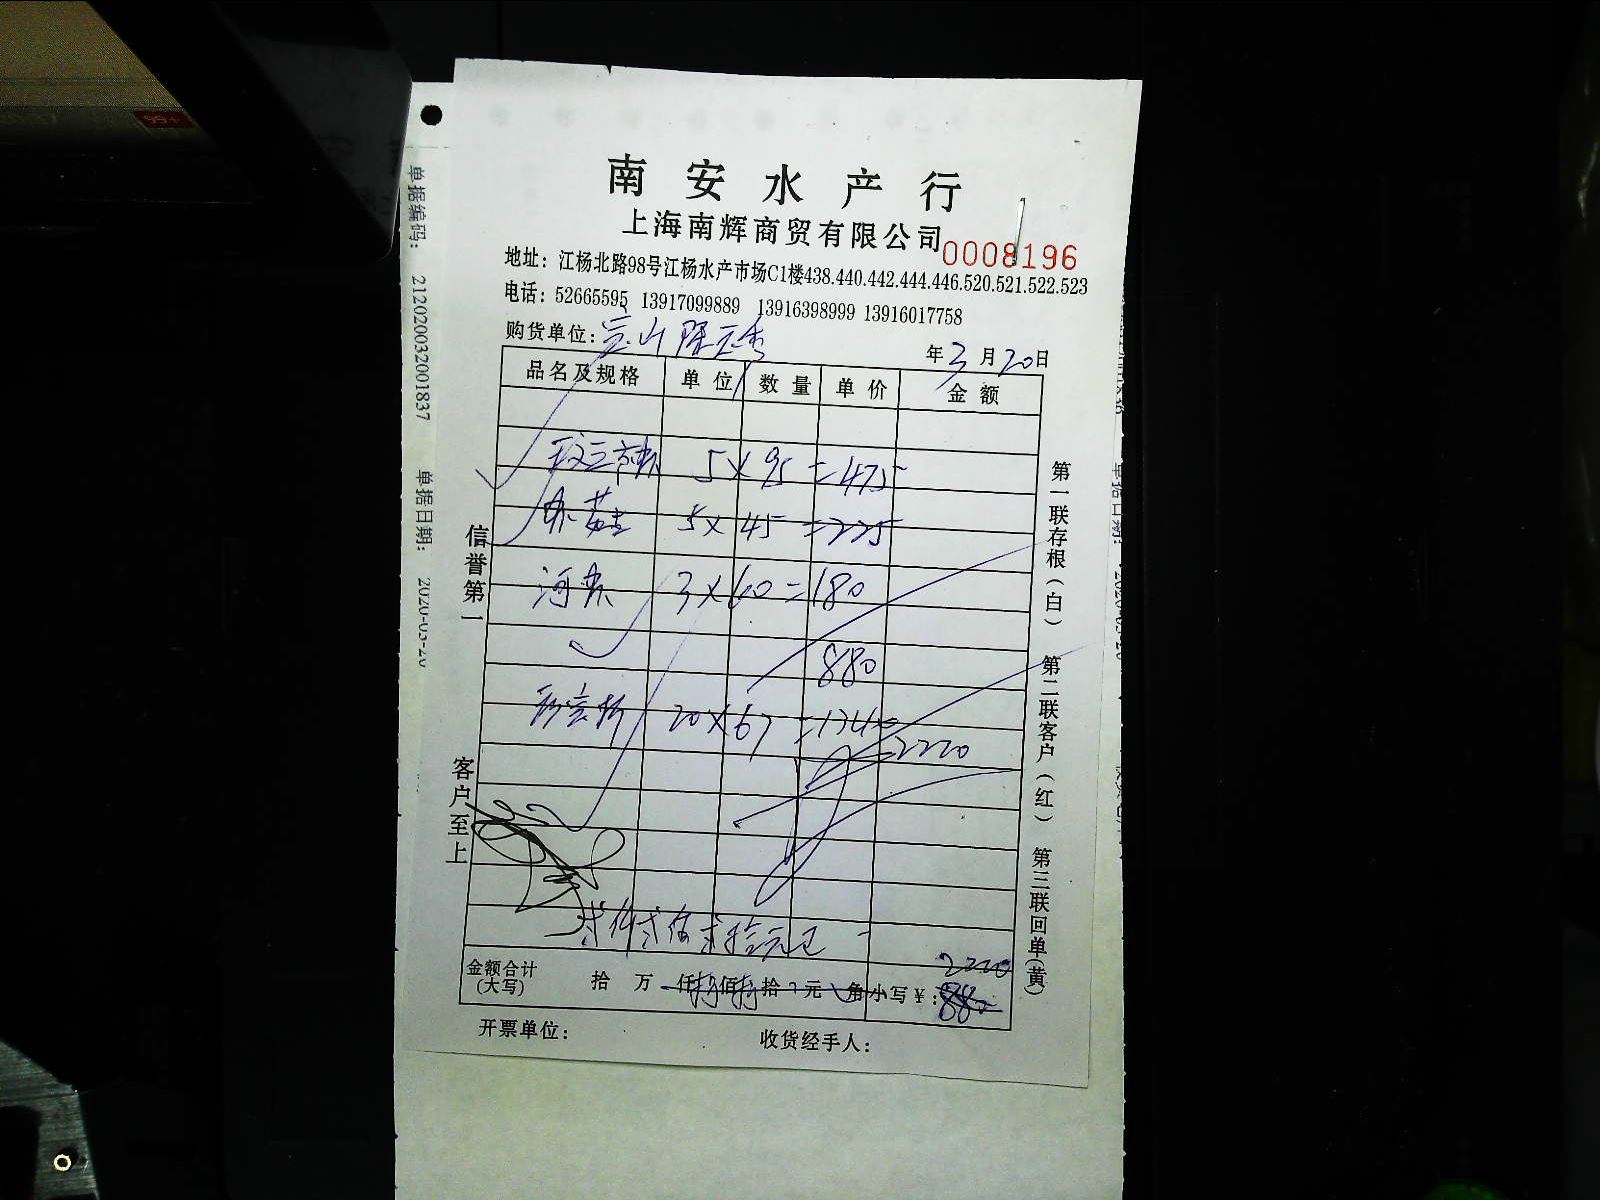 南安水产行
上海南辉商贸有限公司
0008196
地址：江杨北路98号江杨水产市场C1楼438.440.442.444.446.520.521.522.523
电话：52665595 13917099889 13916398999 13916017758
购货单位：宝山
年3月20日
品名及规格 单位 数量 单价 金额
5×95=475
5×45=225
河虾 3×60=180
880
20×67=1340
2220
贰仟贰佰贰拾元正
2220
金额合计(大写) 拾 万 仟 佰 拾 元 角 小写￥：880
开票单位：
收货经手人：
信誉第一
客户至上
第一联存根（白） 第二联客户（红） 第三联回单（黄）
单据编码： 212020032001837 单据日期： 2020-03-20
99+